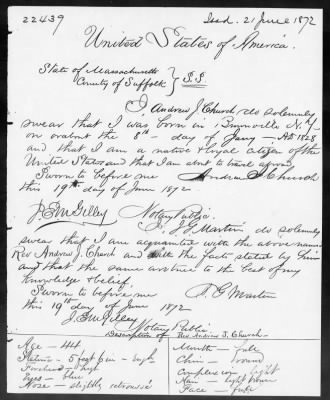 22439
Issd. 21 June 1872
United States of America.
State of Massachusetts
County of Suffolk } S.S.
I Andrew J. Church do solemnly
swear that I was born in N.Y.
on or about the 8th day of Jany AD 1828
and that I am a native & loyal citizen of the
United States and that I am abt to travel abroad
Sworn to before me Andrew J. Church
this 19th day of June 1872
Notary Public.
I. F. G. Martin do solemnly
swear that I am acquainted with the above named
Rev Andrew J. Church and with the facts stated by him
and that the same are true to the best of my
knowledge & belief.
Sworn to before me
this 19th day of June 1872 F. G. Martin
Notary Public
Description of Rev Andrew J. Church
Age - 44
Stature - 5 feet 6 in - high
Forehead - high
Eyes - blue
Nose - slightly
Mouth - full
Chin - round
Complexion - light
Hair - light brown
Face - full